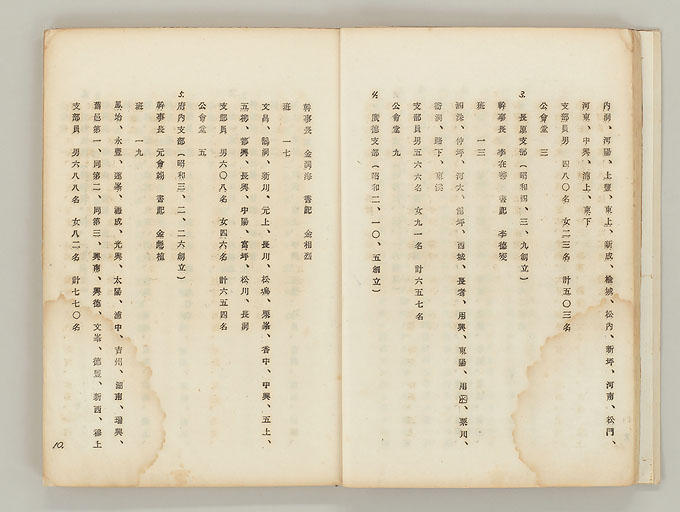 內洞、河陽、上豐、東上、新成、楡城、松內、新坪、河南、松門、
河東、中興、浦上、東下
支部員男 四八〇名 女二三名 計五〇三名
公會堂 三
3. 長原支部(昭和四、三、九創立)
幹事長 李在善 書記 李德
班 一三
西城、長者、用興、東陽、栗川、
支部員男五六六名 女九一名 計六五七名
公會堂 九
4. 廣德支部(昭和二、一〇、五創立)
幹事長 金 海 書記 金相
班 一七
文昌、鶴洞、新川、元上、長川、松 、栗峯、香中、中興、五上、
五柳、都興、長興、中陽、富坪、松川、長洞
支部員 男六〇八名 女四六名 計六五四名
公會堂 五
5. 府內支部(昭和三、二、二六創立)
幹事長 元會 書記 金 植
班 一九
永豐、蓮峯、元興、太陽、浦中、吉州、湖南、瑞興、
第一、同第二、同第三、興南、興德、文峯、德豐、新西、上
支部員 男六八八名 女八二名 計七七〇名
10.